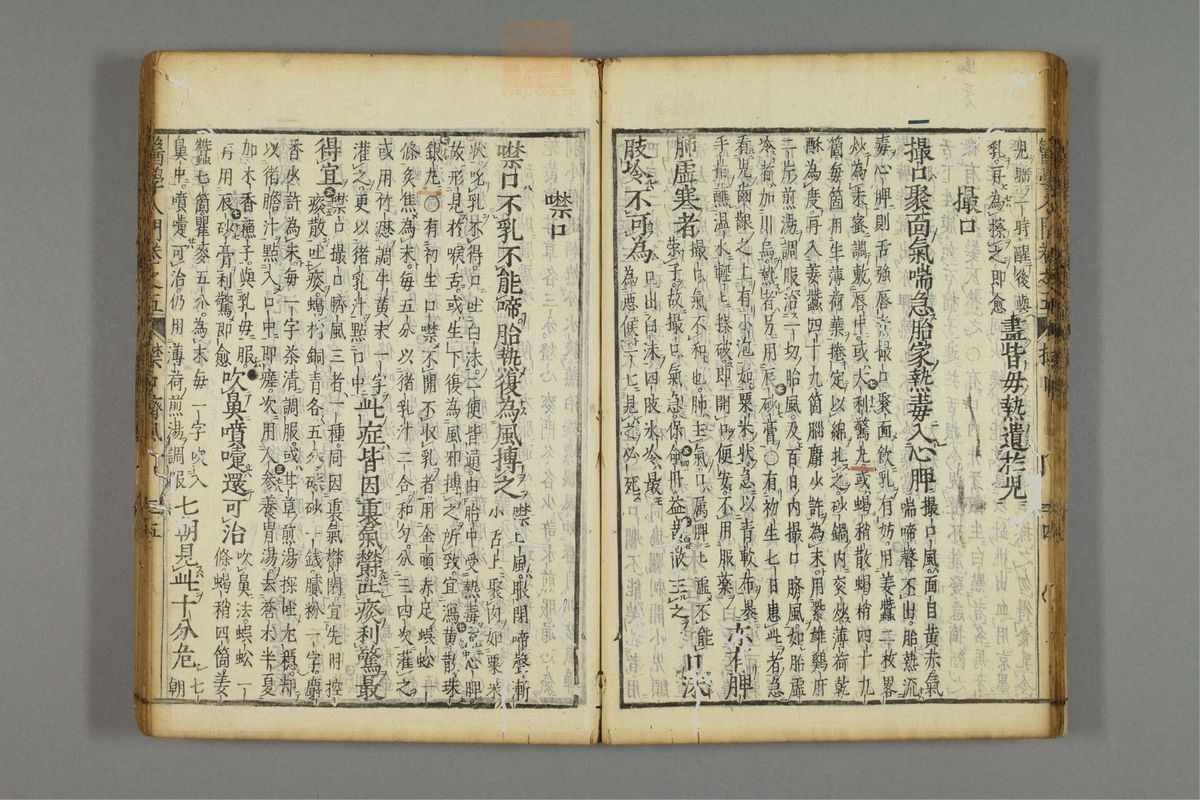 兒睡一時醒後與
乳再為搽之即愈
盡皆母熱遺於兒
撮口
撮口聚面氣喘急胎家熱毒入心脾
撮口風面目黃赤氣
喘啼聲不出胎熱流
毒心脾則舌強唇青撮口聚面飲乳有妨用姜蠶二枚畧
炒為末蜜調敷唇中或大利驚丸或蝎稍散蝎稍四十九
箇每箇用生薄荷葉捲定以綿扎之砂鍋內炙炒薄荷乾
酥為度再入姜蠶四十九箇腦麝少許為末用紫雄鷄肝
二片煎湯調服治一切胎風及百日內撮口臍風如胎虛
冷者加川烏熱者互用辰砂膏○有初生七日患此者急
看兒齒齦之上有小泡如粟米狀急以青軟布裹
手指蘸溫水輕上搽破即開口便安不用服藥
亦有脾
肺虛寒者
撮口氣不和也肺主氣口属脾上虛不能
榮子故撮口氣急保命丹益黃散主之
口沫
肢冷不可為
口出白沫四肢氷冷最
為惡候一七見之必死
噤口
噤口不乳不能啼胎熱復為風搏之
噤上風眼閉啼聲漸
小舌上聚肉如粟米
狀吮乳不得口吐白沫二便皆通由胎中受熱毒流心脾
故形見於喉舌或生下後為風邪搏之所致宜瀉黃散珠
銀丸○有初生口噤不開不收乳者用金頭赤足蜈蚣一
條炙焦為末每五分以猪乳汁二合和勻分三四次灌之
或用竹瀝調牛黃末一字
灌之更以猪乳汁點口中
此症皆因裏氣鬱吐痰利驚最
得宜
噤口撮口臍風三者一種同因裏氣鬱閉宜先用控
痰散吐痰蝎稍銅青各五分朱砂一錢膩粉一字麝
香少許為末每一字茶清調服或甘草煎湯探吐尤穩却
以猪膽汁點入口中即瘥次用人參養胃湯去蒼朮半夏
加木香穗子與乳母服
再用辰砂膏利驚即愈
吹鼻噴嚏還可治
吹鼻法蜈蚣一
條蝎稍四箇姜
蠶七箇瞿麥五分為末每一字吹入
鼻中噴嚏可治仍用薄荷煎湯調服
七朝見此十分危
一七
朝
醫學入門卷之五
噤口臍風